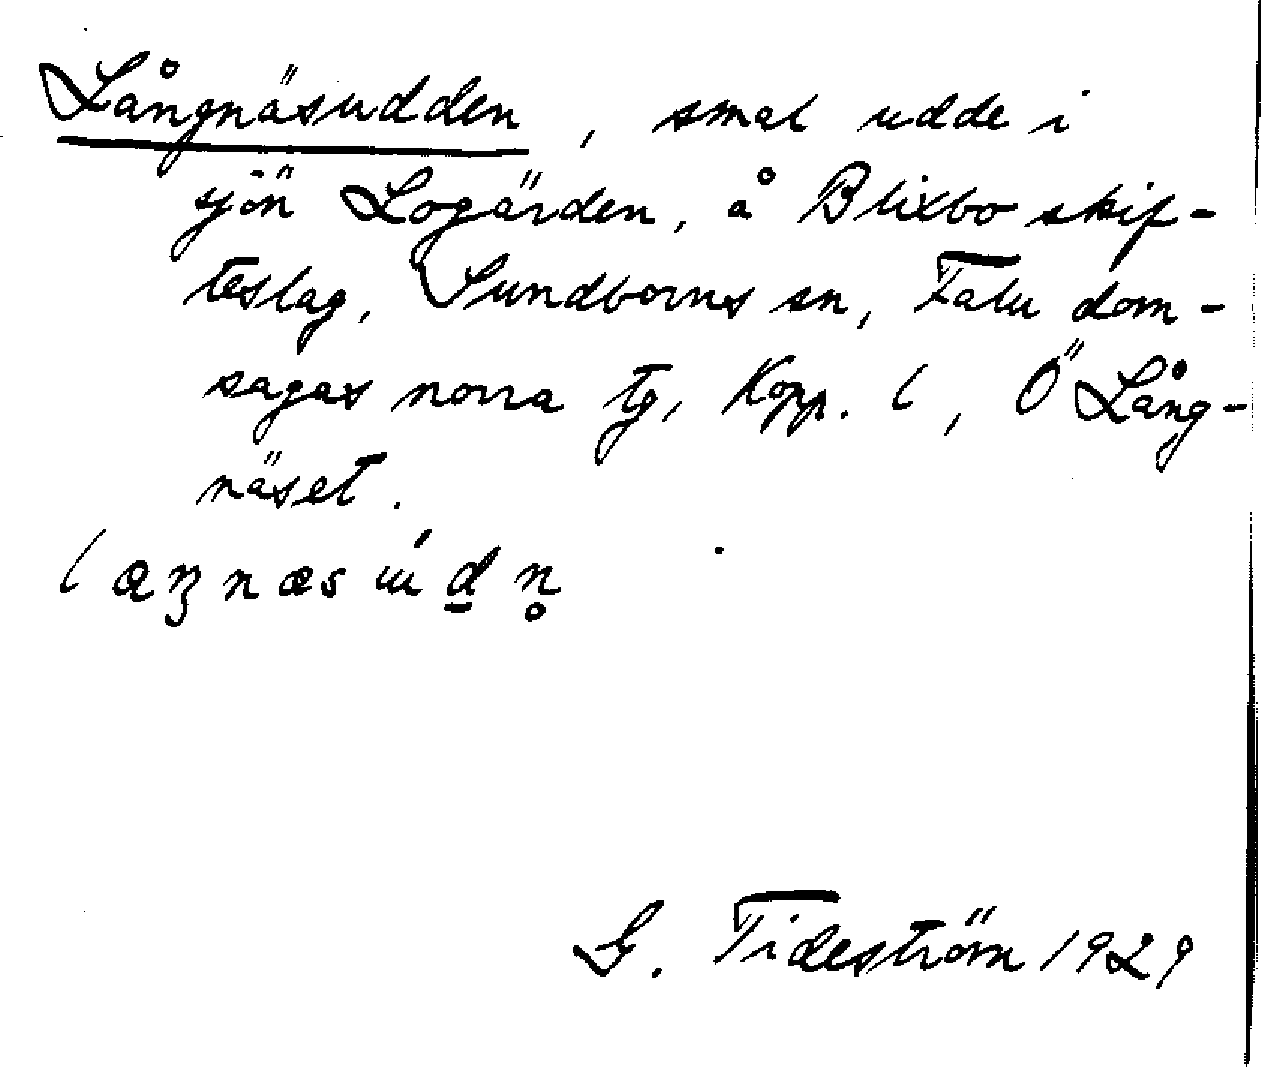 Långnäsudden, smal udde i
sjön Logärden, å Blixbo skif-
teslag, Sundborns sn, Falu dom-
sagas norra tg, Kopp. l, Ö Lång-
näset.
G. Tideström 1929